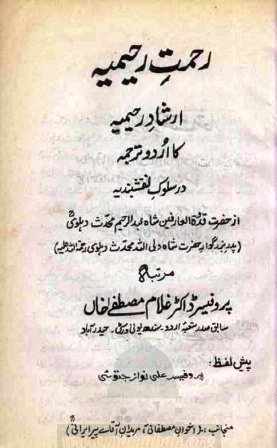 رحمتِ رحیمیہ
ارشادِ رحیمیہ
کا اُردو ترجمہ
در سلوکِ نقشبندیہ
از حضرت قدوۃ العارفین شاہ عبدالرحیم محدث دہلویؒ
(پدر بزرگوار حضرت شاہ ولی اللہ محدث دہلوی رحمۃ اللہ علیہ)
مرتبہ
پروفیسر ڈاکٹر غلام مصطفےٰ خاں
سابق صدر شعبۂ اردو۔ سندھ یونی ورسٹی۔ حیدرآباد
پیش لفظ:
پروفیسر علی نواز جتوئی
منجانب: اخوان مصطفائی، مریدانِ آقائے پیر ایرانی